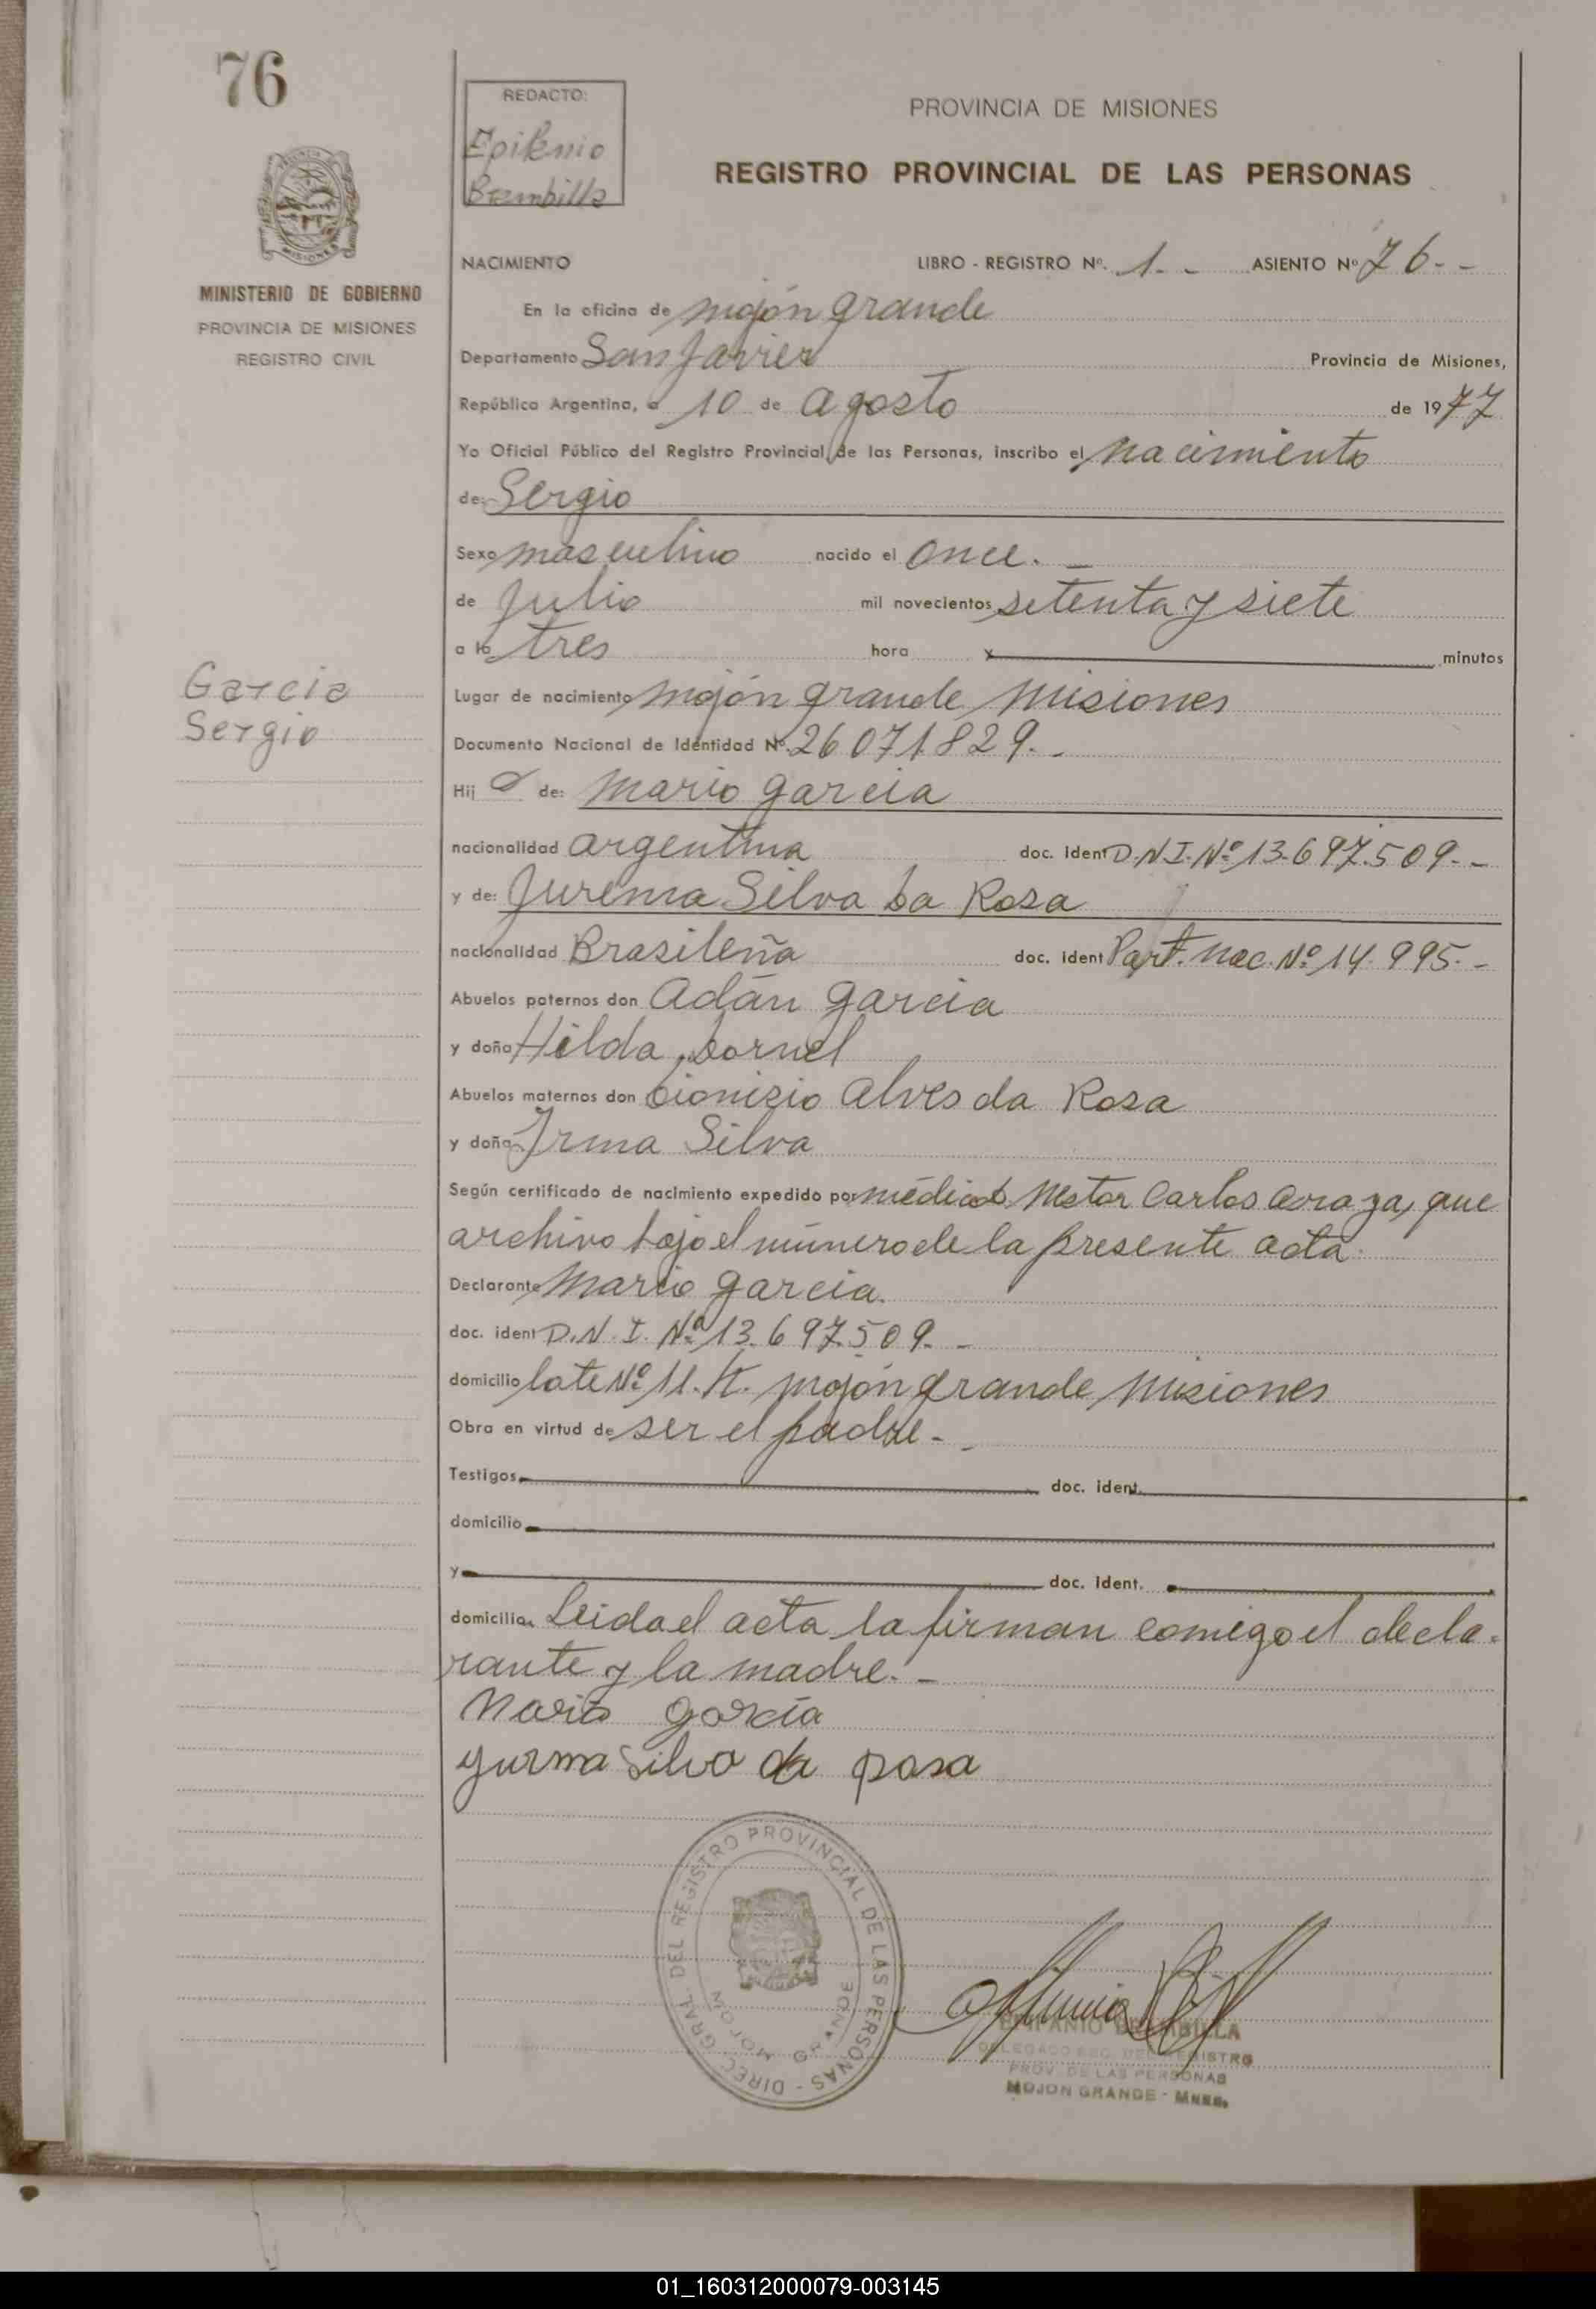 76
REDACTO:
Epifanio
Brambilla
PROVINCIA DE MISIONES
REGISTRO PROVINCIAL DE LAS PERSONAS
MINISTERIO DE GOBIERNO
PROVINCIA DE MISIONES
REGISTRO CIVIL
NACIMIENTO LIBRO - REGISTRO Nº. 1.- ASIENTO Nº 76.-
En la oficina de Mojón grande
Departamento San Javier Provincia de Misiones,
República Argentina, a 10 de agosto de 1977
Yo Oficial Público del Registro Provincial de las Personas, inscribo el nacimiento
de: Sergio
Sexo masculino nacido el once.-
de Julio mil novecientos setenta y siete
a la tres hora x minutos
Garcia
Sergio
Lugar de nacimiento mojón grande Misiones
Documento Nacional de Identidad Nº. 26.071.829.-
Hij o de: Mario Garcia
nacionalidad argentina doc. ident D.N.I. Nº 13.697.509.-
y de: Jurema Silva Da Rosa
nacionalidad Brasileña doc. ident Part. Nac. Nº 14.995.-
Abuelos paternos don Adán Garcia
y doña Hilda Dornel
Abuelos maternos don Dionizio Alves da Rosa
y doña Irma Silva
Según certificado de nacimiento expedido por médico Nestor Carlos que
archivo bajo el número de la presente acta.
Declarante Mario Garcia.
doc. ident D.N.I. Nº 13.697.509.-
domicilio lote Nº 11. mojón grande Misiones
Obra en virtud de ser el padre.-
Testigos doc. ident.
domicilio
y doc. ident.
domicilio Leida el acta la firman comigo el decla-
rante y la madre.-
Mario garcía
yurma Silva da rosa
DIREC. GRAL. DEL REGISTRO PROVINCIAL DE LAS PERSONAS -
MOJON GRANDE
EPIFANIO BRAMBILLA
DELEGADO REG. DEL REGISTRO
PROV. DE LAS PERSONAS
MOJON GRANDE - MNES.
01_160312000079-003145